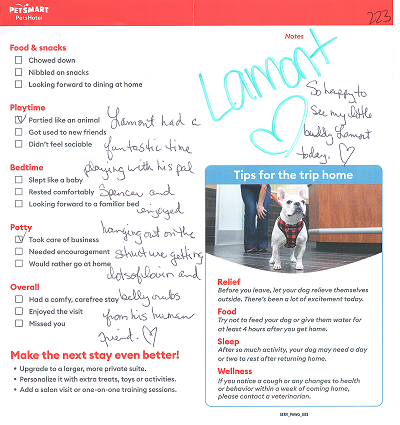 PETSMART
PetsHotel
223
Food & snacks
Chowed down
Nibbled on snacks
Looking forward to dining at home
Playtime
Partied like an animal
Got used to new friends
Didn't feel sociable
Bedtime
Slept like a baby
Rested comfortably
Looking forward to a familiar bed
Potty
Took care of business
Needed encouragement
Would rather go at home
Overall
Had a comfy, carefree stay
Enjoyed the visit
Missed you
Lamont had a
fantastic time
playing with his pal
Spencer and
enjoyed
hanging out on the
structure getting
lots of lovin and
belly rubs
from his human
friend. ♡
Make the next stay even better!
• Upgrade to a larger, more private suite.
• Personalize it with extra treats, toys or activities.
• Add a salon visit or one-on-one training sessions.
Notes
Lamont
So happy to
see my little
buddy Lamont
today. ♡
Tips for the trip home
Relief
Before you leave, let your dog relieve themselves
outside. There's been a lot of excitement today.
Food
Try not to feed your dog or give them water for
at least 4 hours after you get home.
Sleep
After so much activity, your dog may need a day
or two to rest after returning home.
Wellness
If you notice a cough or any changes to health
or behavior within a week of coming home,
please contact a veterinarian.